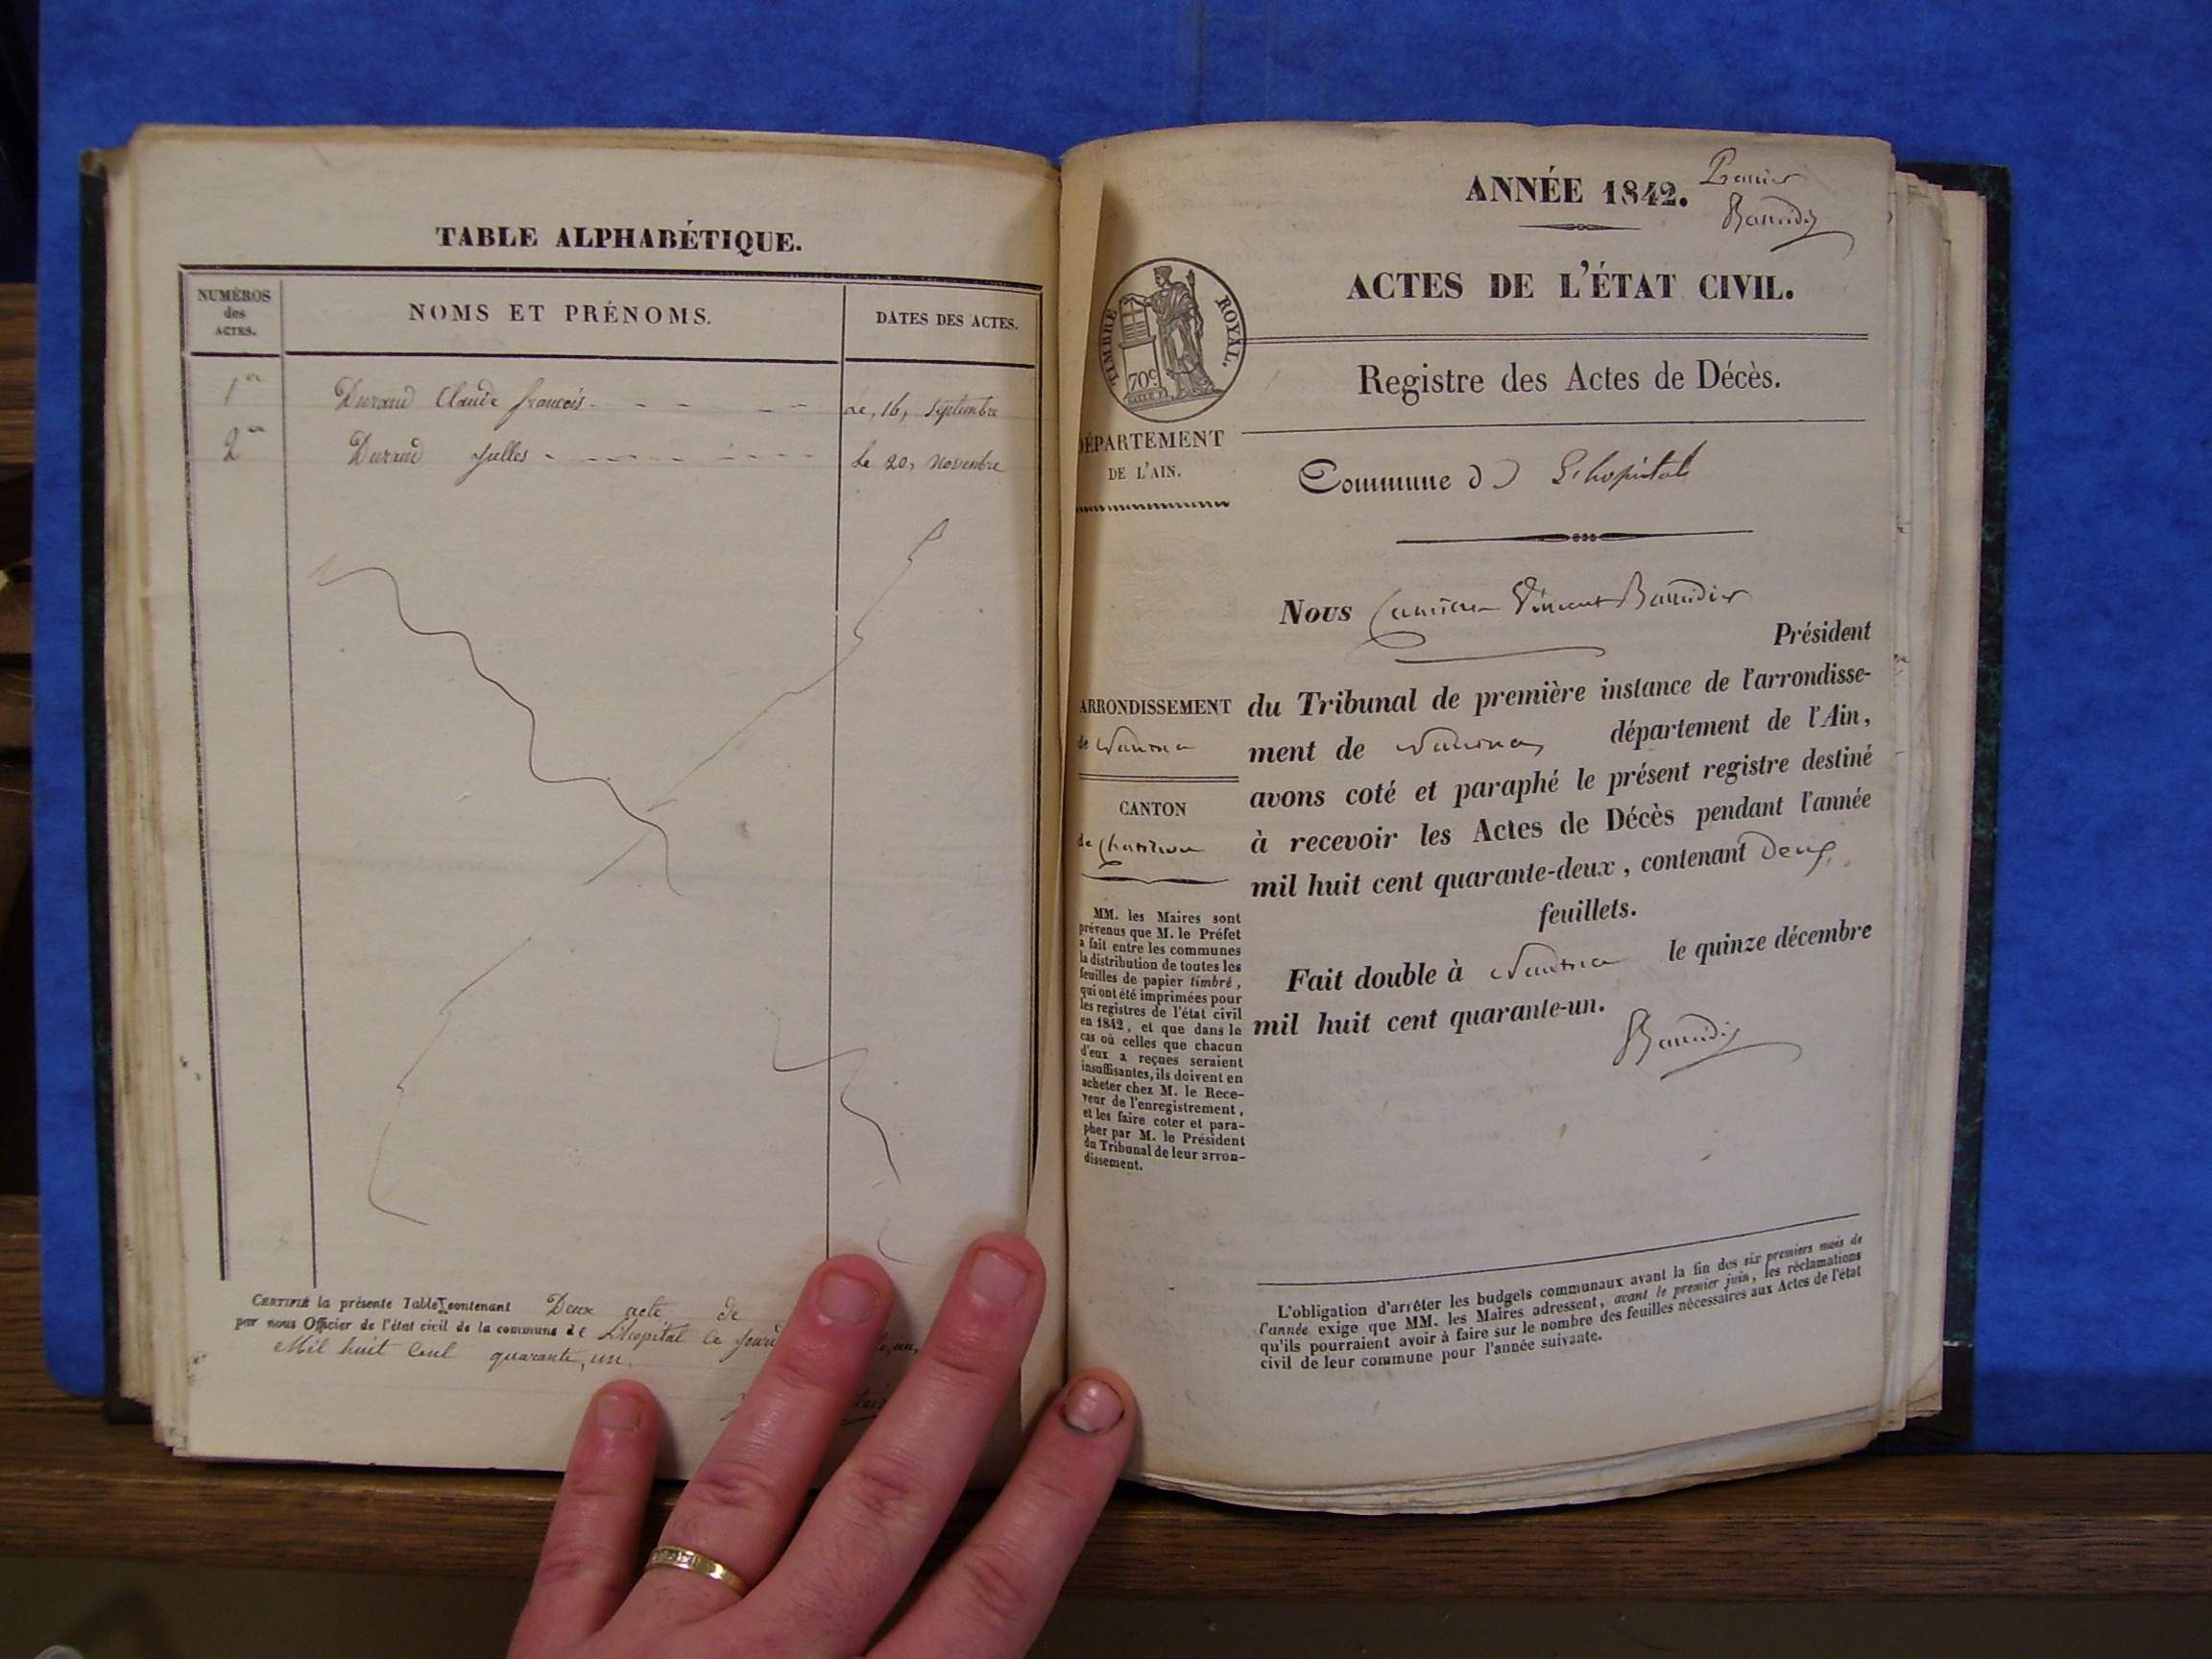 TABLE ALPHABÉTIQUE.
NUMÉROS
des
ACTES.
NOMS ET PRÉNOMS.
DATES DES ACTES.
1er Durand Claude francois. Le, 16, Septembre
2 Durand Julles Le 20, Novembre
CERTIFIÉ la présente Table contenant Deux acte de
par nous Officier de l'état civil de la commune de L'hopital Le
Mil huit Cent quarante, un
ANNÉE 1842.
Premier
Baudin
ACTES DE L'ÉTAT CIVIL.
TIMBRE ROYAL.
70c
Registre des Actes de Décès.
DÉPARTEMENT
DE L'AIN.
Commune de L'hopital
Nous Vincent
Président
ARRONDISSEMENT
de Nantua
CANTON
de Chatillon
du Tribunal de première instance de l'arrondisse-
ment de Nantua, département de l'Ain,
avons coté et paraphé le présent registre destiné
à recevoir les Actes de Décès pendant l'année
mil huit cent quarante-deux, contenant Deux
feuillets.
Fait double à Nantua le quinze décembre
mil huit cent quarante-un.
MM. les Maires sont
prévenus que M. le Préfet
a fait entre les communes
la distribution de toutes les
feuilles de papier timbré,
qui ont été imprimées pour
les registres de l'état civil
en 1842, et que dans le
cas où celles que chacun
d'eux a reçues seraient
insuffisantes, ils doivent en
acheter chez M. le Rece-
veur de l'enregistrement,
et les faire coter et para-
pher par M. le Président
du Tribunal de leur arron-
dissement.
L'obligation d'arrêter les budgets communaux avant la fin des six premiers mois de
l'année exige que MM. les Maires adressent, avant le premier juin, les réclamations
qu'ils pourraient avoir à faire sur le nombre des feuilles nécessaires aux Actes de l'état
civil de leur commune pour l'année suivante.